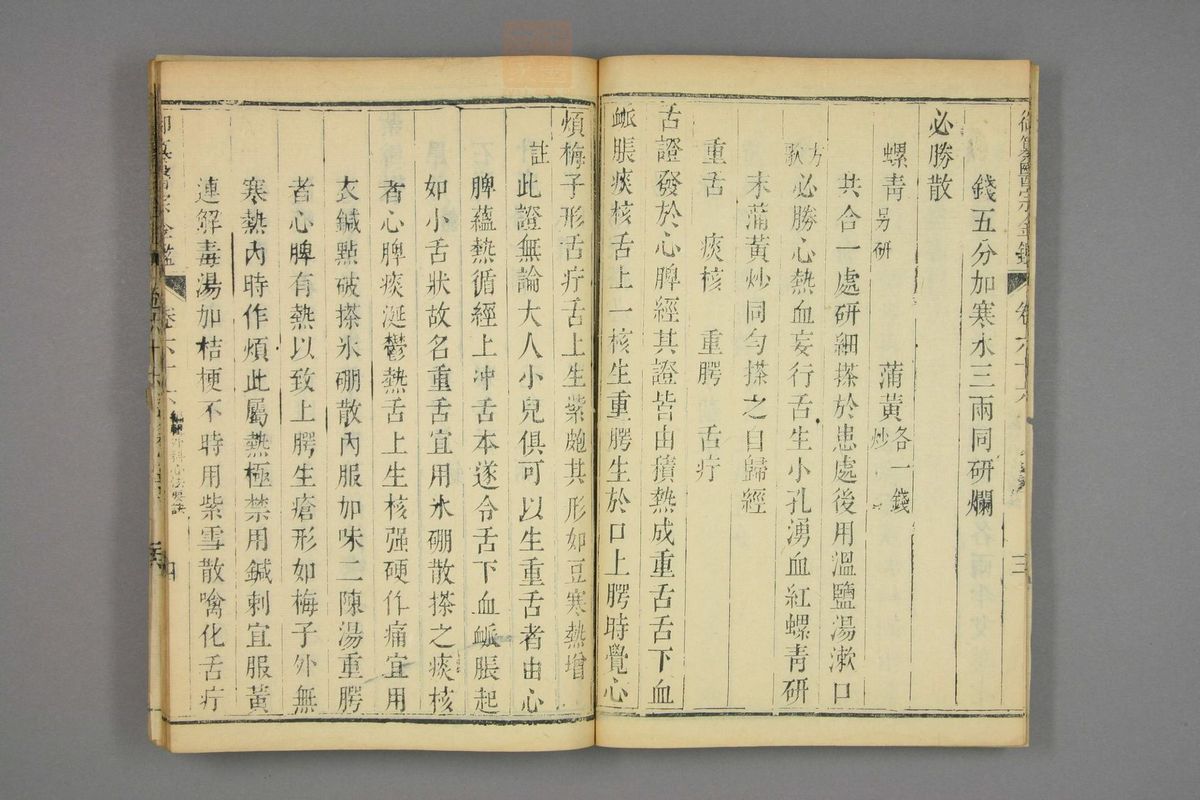 錢五分加寒水三兩同研爛
必勝散
螺青另研 蒲黃炒各一錢
共合一處研細搽於患處後用溫鹽湯漱口
方歌必勝心熱血妄行舌生小孔湧血紅螺青研
末蒲黃炒同勻搽之自歸經
重舌 痰核 重腭 舌疔
舌證發於心脾經其證皆由積熱成重舌舌下血
衇脹痰核舌上一核生重腭生於口上腭時覺心
煩梅子形舌疔舌上生紫皰其形如豆寒熱增
註此證無論大人小兒俱可以生重舌者由心
脾蘊熱循經上冲舌本遂令舌下血衇脹起
如小舌狀故名重舌宜用氷硼散搽之痰核
者心脾痰涎鬱熱舌上生核强硬作痛宜用
衣鍼點破搽氷硼散內服加味二陳湯重腭
者心脾有熱以致上腭生瘡形如梅子外無
寒熱內時作煩此屬熱極禁用鍼刺宜服黃
連解毒湯加桔梗不時用紫雪散噙化舌疔